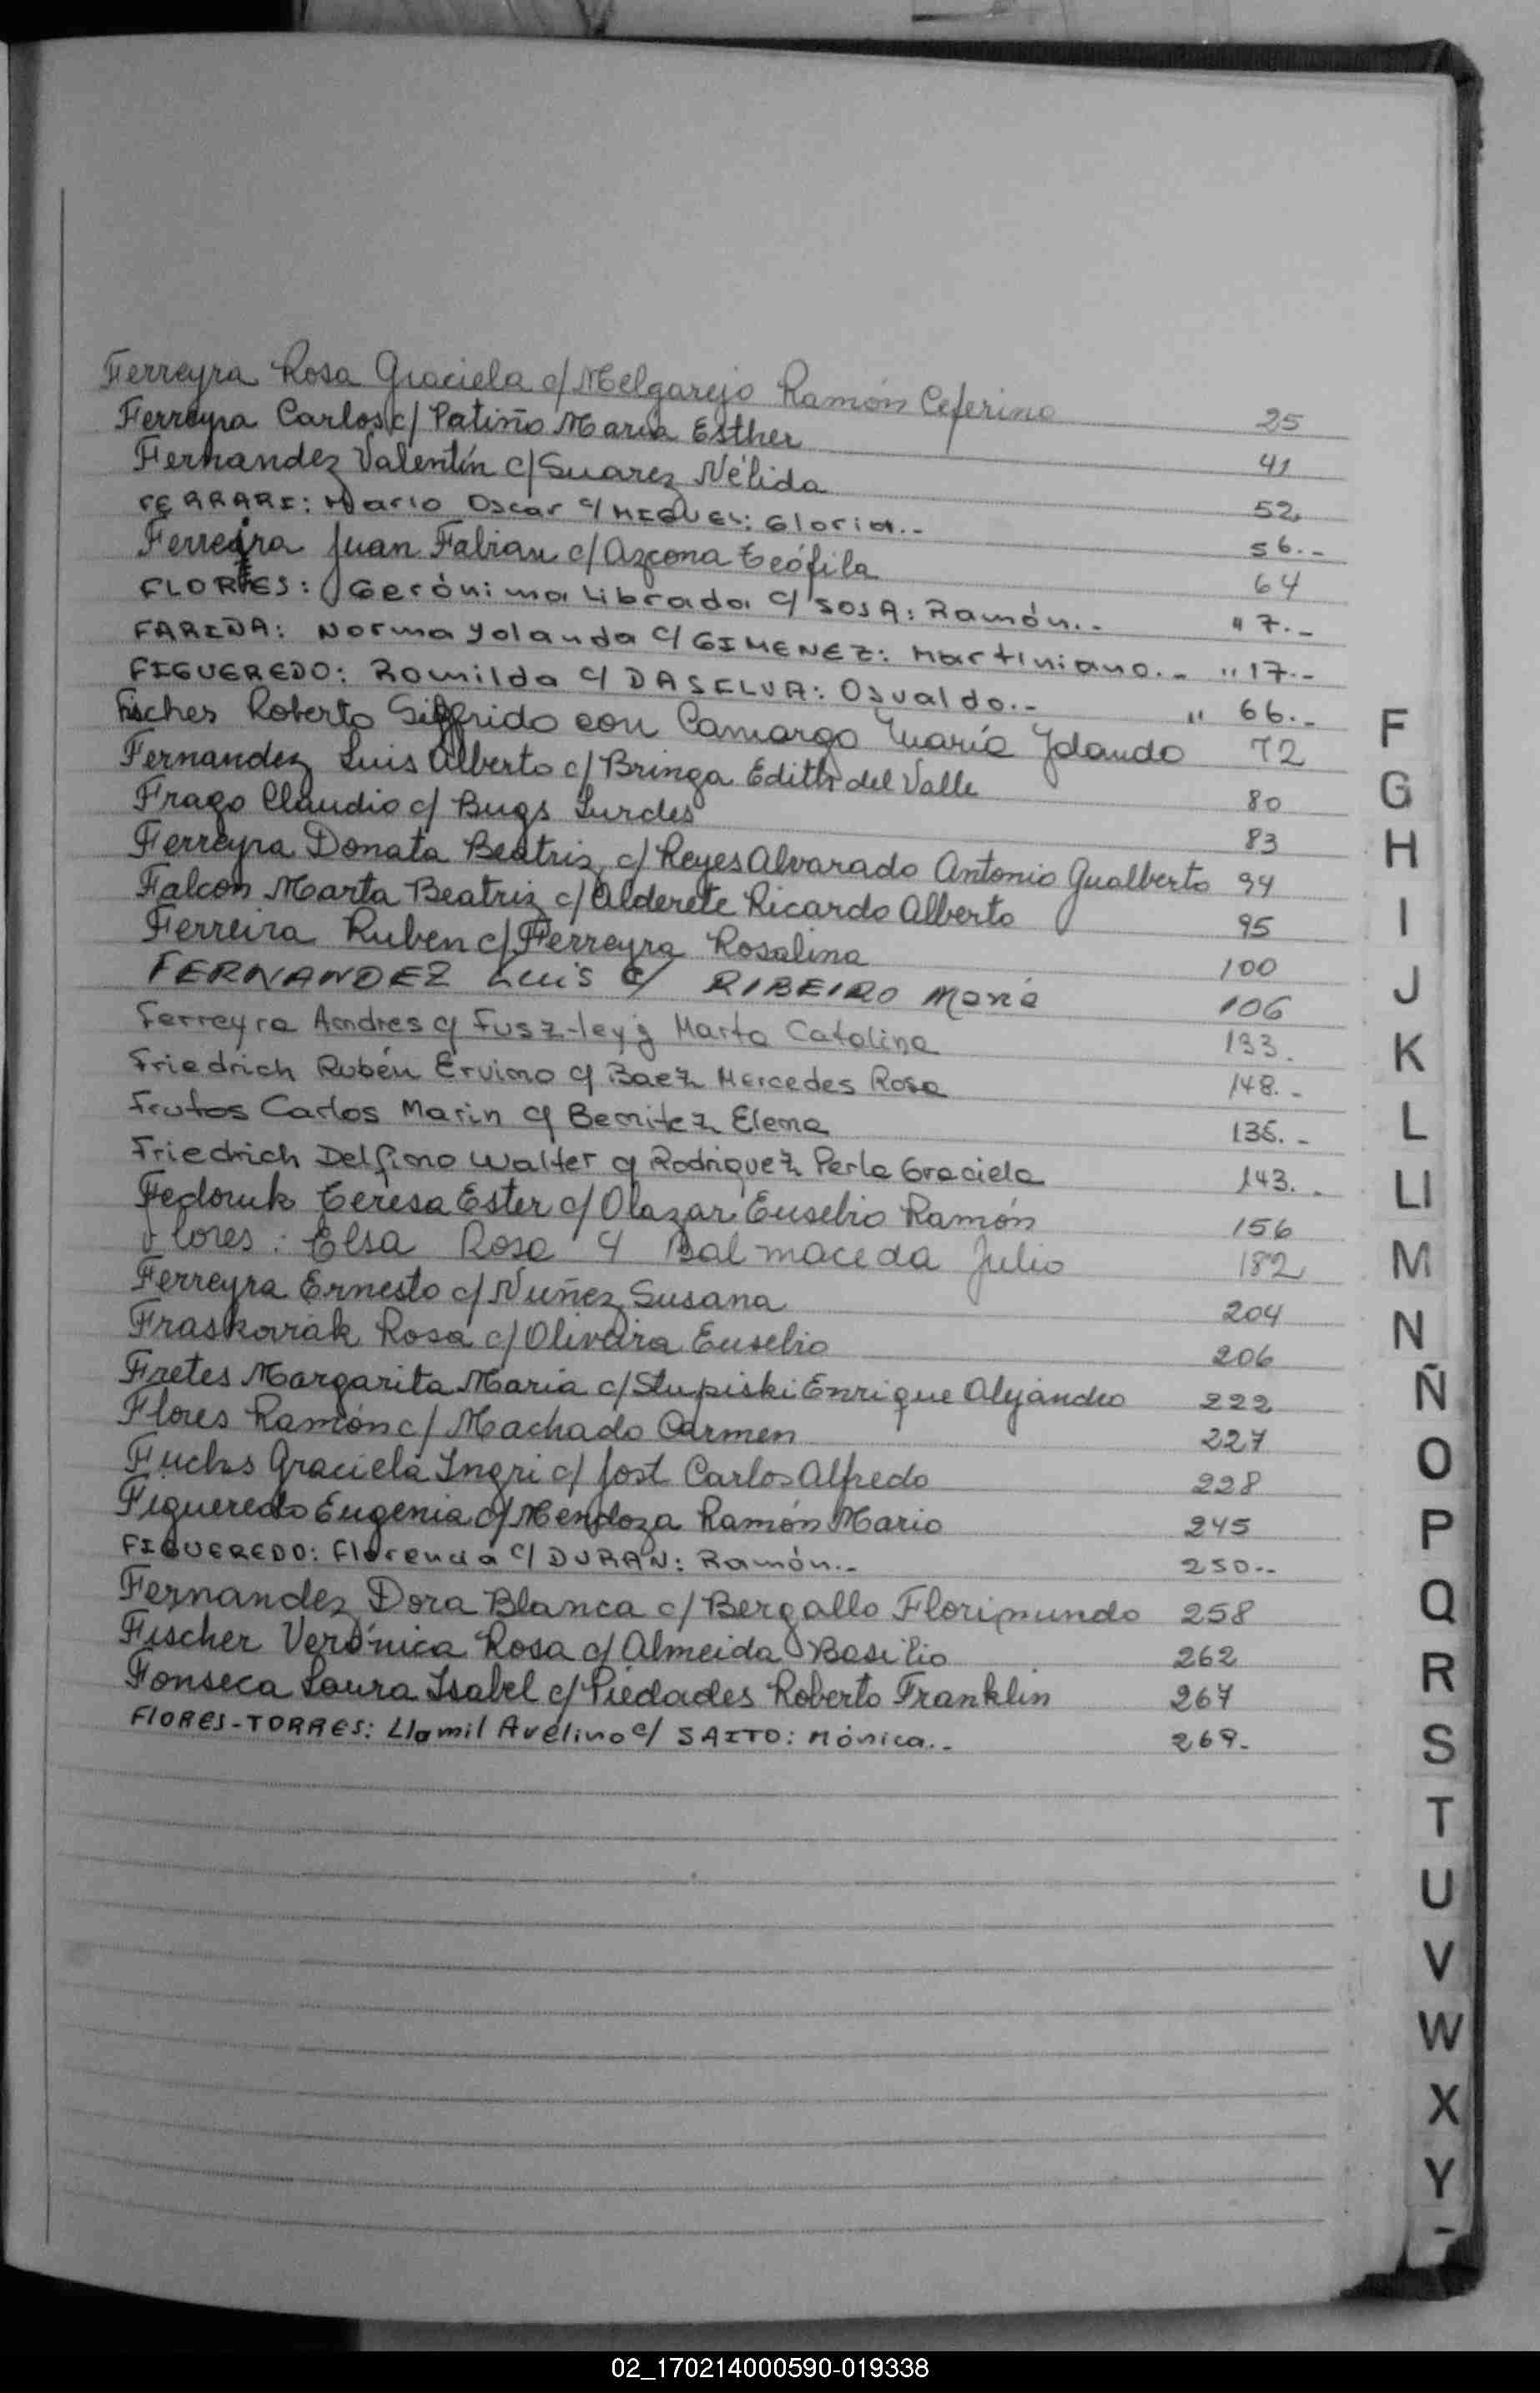 Ferreyra Rosa Graciela c/ Melgarejo Ramón Ceferino 25
Ferreyra Carlos c/ Patiño Maria Esther 41
Fernandez Valentín c/ Suarez Nélida 52
FERRARI: Mario Oscar c/ MIGUEL: Gloria.- 56.-
Ferreira Juan Fabian c/ Azcona Teófila 64
FLORES: Gerónima Librada c/ SOSA: Ramón.- " 7.-
FARIÑA: Norma Yolanda c/ GIMENEZ: Martiniano.- " 17.-
FIGUEREDO: Romilda c/ DASELVA: Osvaldo.- " 66.-
Fischer Roberto Sigfrido con Camargo María Yolanda 72
Fernandez Luis Alberto c/ Bringa Edith del Valle 80
Frago Claudio c/ Bugs Lurdes 83
Ferreyra Donata Beatriz c/ Reyes Alvarado Antonio Gualberto 94
Falcon Marta Beatriz c/ Alderete Ricardo Alberto 95
Ferreira Ruben c/ Ferreyra Rosalina 100
FERNANDEZ Luis c/ RIBEIRO Maria 106
Ferreyra Andres c/ Marta Catalina 133.
Friedrich Rubén Ervino c/ Baez Mercedes Rosa 148.-
Frutos Carlos Marin c/ Benitez Elena 136.-
Friedrich Delfino Walter c/ Rodriguez Perla Graciela 143.-
Fedoruk Teresa Ester c/ Olazar Eusebio Ramón 156
Flores: Elsa Rosa c/ Balmaceda Julio 182
Ferreyra Ernesto c/ Nuñez Susana 204
Fraskovrak Rosa c/ Oliveira Eusebio 206
Fretes Margarita Maria c/ Stupiski Enrique Alejandro 222
Flores Ramón c/ Machado Carmen 227
Fuchs Graciela Ingri c/ Jost Carlos Alfredo 228
Figueredo Eugenia c/ Mendoza Ramón Mario 245
FIGUEREDO: Florencia c/ DURAN: Ramón.- 250.-
Fernandez Dora Blanca c/ Bergallo Florimundo 258
Fischer Verónica Rosa c/ Almeida Basilio 262
Fonseca Laura Isabel c/ Piedades Roberto Franklin 267
FLORES-TORRES: Llamil Avelino c/ SAITO: Mónica.- 269.-
F
G
H
I
J
K
L
Ll
M
N
Ñ
O
P
Q
R
S
T
U
V
W
X
Y
-
02_170214000590-019338